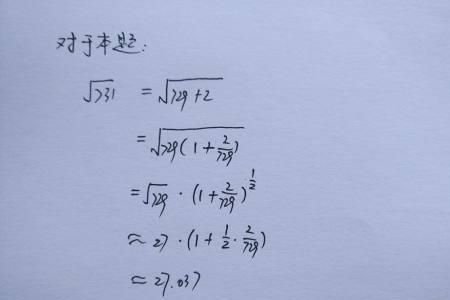 对于本题:
√731 = √729+2
= √729(1+2/729)
= √729 · (1+2/729)^1/2
≈ 27 · (1+1/2·2/729)
≈ 27.037